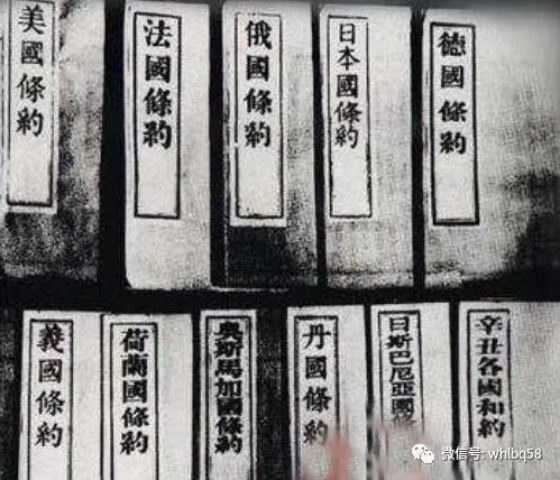 美國條約
法國條約
俄國條約
日本國條約
德國條約
義國條約
荷蘭國條約
奥斯馬加國條約
丹國條約
日斯巴尼亞國條
辛丑各國和約
微信号: whlbq58